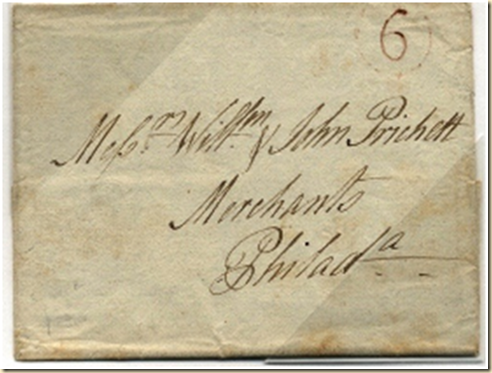 6
Messrs. Willm. & John Prichett
Merchants
Philada.